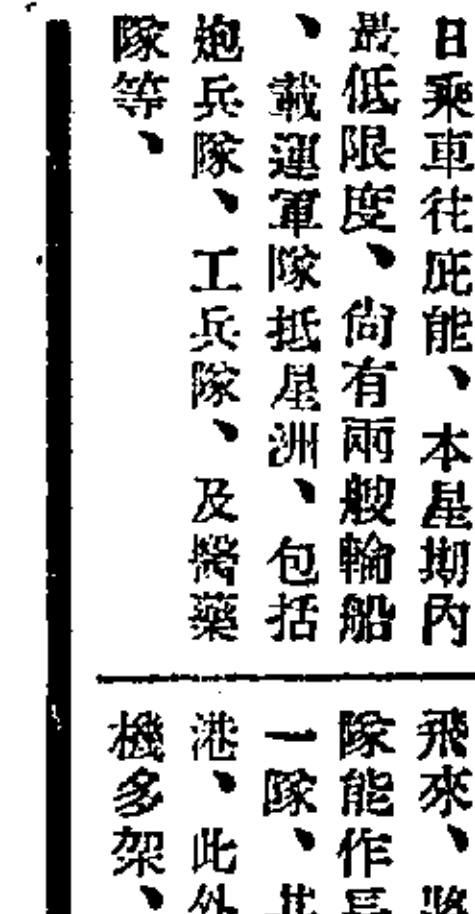 日乘車往庇能、本星期內
最低限度、尙有兩艘輪船
、載運軍隊抵星洲、包括
炮兵隊、工兵隊、及醫藥
隊等、
飛來、
隊能作
一隊、
港、此外
機多架、